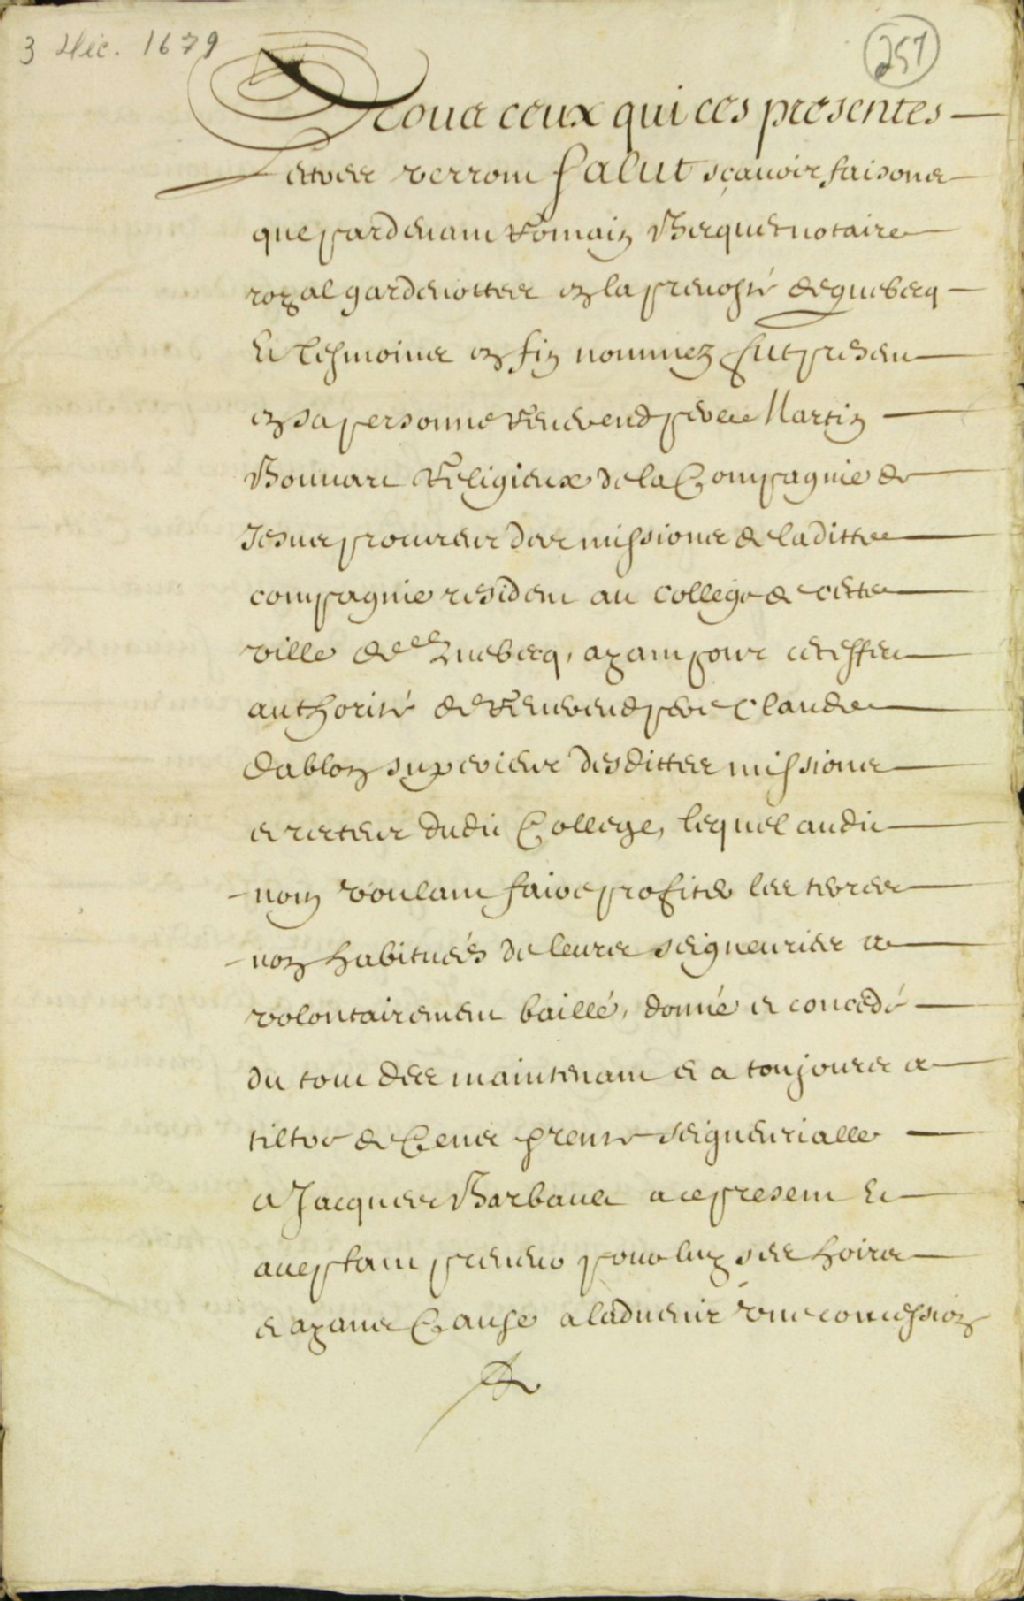 3 Déc. 1679
251
A Tous ceux qui ces presentes
Lettres verront Salut sçavoir faisons
que pardevant Romain Becquet notaire
royal gardenottes en la prevosté de quebecq
Et tesmoins en fin nommez fut present
en sa personne Reverend pere Martin
Bouvart Religieux de la Compagnie de
Jesus procureur des missions de laditte
compagnie resident au College de cette
ville de Quebecq, ayant pour cet effect
authorité de Reverend pere Claude
dablon superieur desdittes missions
et recteur dudit College, lequel audit
nom voulant faire profiter les terres
non habituées de leurs seigneuries a
volontairement baillé, donné et concedé
du tout dès maintenant et a toujours a
tiltre de Cens et rente seigneurialle
a Jacques Barbaut a ce present Et
acceptant preneur pour luy ses hoirs
et ayans Cause a ladvenir une concession